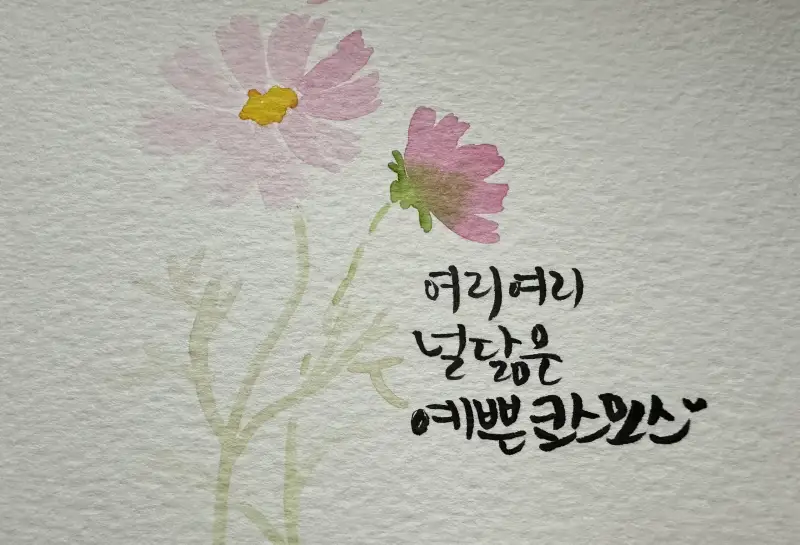 여리여리
널닮은
예쁜코스모스♥